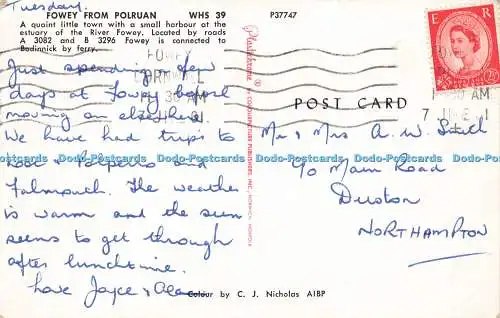 Tuesday.
FOWEY FROM POLRUAN WHS 39
A quaint little town with a small harbour at the
estuary of the River Fowey. Located by roads
A 3082 and B 3296 Fowey is connected to
Bodinnick by ferry.
P37747
Just spending a few
days at Fowey before
moving on elsewhere.
We have had trips to
Looe & Polperro and
Falmouth. The weather
is warm and the sun
seems to get through
after lunchtime.
Love Joyce & Alan
Colour by C. J. Nicholas AIBP
FOWEY
CORNWALL
Plastichrome ® by COLOURPICTURE PUBLISHERS, INC.
E R
POST CARD
Mr & Mrs A. W. Smith
90 Main Road
Duston
NORTHAMPTON
Dodo-Postcards Dodo-Postcards Dodo-Postcards Dodo-Postcards Dodo-Postcards